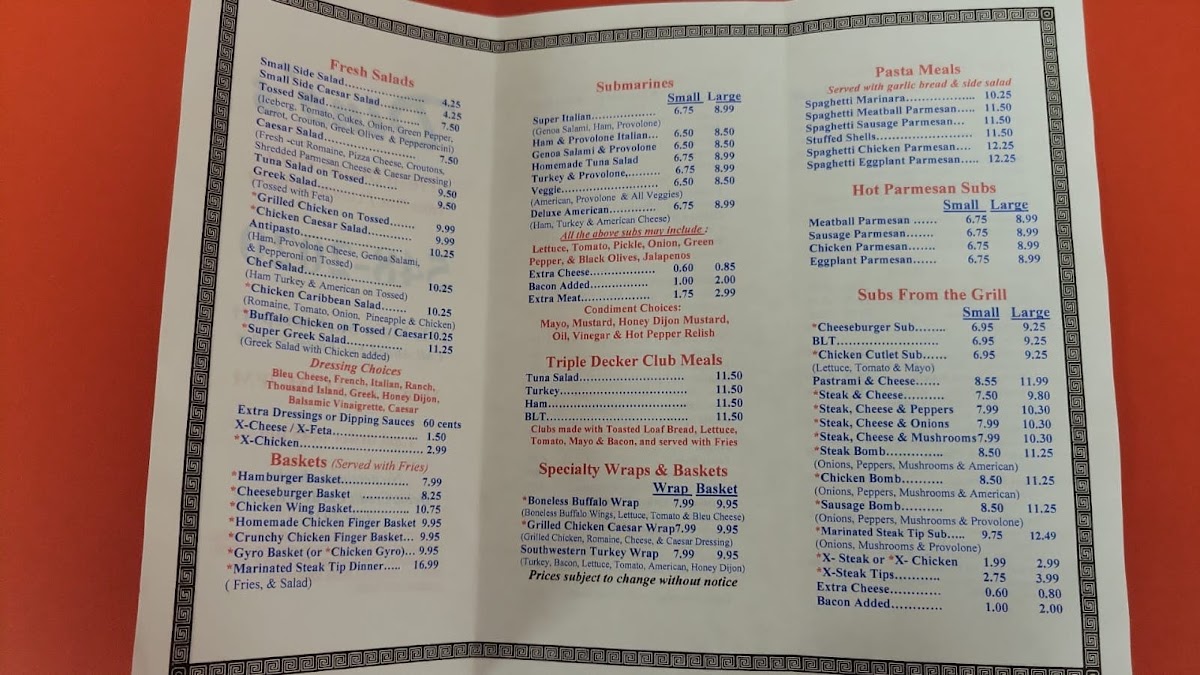 Fresh Salads
Small Side Salad.................... 4.25
Small Side Caesar Salad................... 4.25
Tossed Salad........................ 7.50
(Iceberg, Tomato, Cukes, Onion, Green Pepper,
Carrot, Crouton, Greek Olives & Pepperoncini)
Caesar Salad............................ 7.50
(Fresh -cut Romaine, Pizza Cheese, Croutons,
Shredded Parmesan Cheese & Caesar Dressing)
Tuna Salad on Tossed........ 9.50
Greek Salad..................... 9.50
(Tossed with Feta)
*Grilled Chicken on Tossed....... 9.99
*Chicken Caesar Salad............ 9.99
Antipasto........................... 10.25
(Ham, Provolone Cheese, Genoa Salami,
& Pepperoni on Tossed)
Chef Salad.......................... 10.25
(Ham Turkey & American on Tossed)
*Chicken Caribbean Salad....... 10.25
(Romaine, Tomato, Onion, Pineapple & Chicken)
*Buffalo Chicken on Tossed / Caesar10.25
*Super Greek Salad................ 11.25
(Greek Salad with Chicken added)
Dressing Choices
Bleu Cheese, French, Italian, Ranch,
Thousand Island, Greek, Honey Dijon,
Balsamic Vinaigrette, Caesar
Extra Dressings or Dipping Sauces 60 cents
X-Cheese / X-Feta...................... 1.50
*X-Chicken............................... 2.99
Baskets (Served with Fries)
*Hamburger Basket................. 7.99
*Cheeseburger Basket ............. 8.25
*Chicken Wing Basket............... 10.75
*Homemade Chicken Finger Basket 9.95
*Crunchy Chicken Finger Basket... 9.95
*Gyro Basket (or *Chicken Gyro)... 9.95
*Marinated Steak Tip Dinner..... 16.99
( Fries, & Salad)
Submarines
Small Large
Super Italian..................... 6.75 8.99
(Genoa Salami, Ham, Provolone)
Ham & Provolone Italian... 6.50 8.50
Genoa Salami & Provolone 6.50 8.50
Homemade Tuna Salad 6.75 8.99
Turkey & Provolone,......... 6.75 8.99
Veggie.......................... 6.50 8.50
(American, Provolone & All Veggies)
Deluxe American............. 6.75 8.99
(Ham, Turkey & American Cheese)
All the above subs may include :
Lettuce, Tomato, Pickle, Onion, Green
Pepper, & Black Olives, Jalapenos
Extra Cheese.................. 0.60 0.85
Bacon Added................ 1.00 2.00
Extra Meat................... 1.75 2.99
Condiment Choices:
Mayo, Mustard, Honey Dijon Mustard,
Oil, Vinegar & Hot Pepper Relish
Triple Decker Club Meals
Tuna Salad............................. 11.50
Turkey................................... 11.50
Ham....................................... 11.50
BLT....................................... 11.50
Clubs made with Toasted Loaf Bread, Lettuce,
Tomato, Mayo & Bacon, and served with Fries
Specialty Wraps & Baskets
Wrap Basket
*Boneless Buffalo Wrap 7.99 9.95
(Boneless Buffalo Wings, Lettuce, Tomato & Bleu Cheese)
*Grilled Chicken Caesar Wrap7.99 9.95
(Grilled Chicken, Romaine, Cheese, & Caesar Dressing)
Southwestern Turkey Wrap 7.99 9.95
(Turkey, Bacon, Lettuce, Tomato, American, Honey Dijon)
Prices subject to change without notice
Pasta Meals
Served with garlic bread & side salad
Spaghetti Marinara.................. 10.25
Spaghetti Meatball Parmesan..... 11.50
Spaghetti Sausage Parmesan... 11.50
Stuffed Shells......................... 11.50
Spaghetti Chicken Parmesan.... 12.25
Spaghetti Eggplant Parmesan..... 12.25
Hot Parmesan Subs
Small Large
Meatball Parmesan ...... 6.75 8.99
Sausage Parmesan....... 6.75 8.99
Chicken Parmesan....... 6.75 8.99
Eggplant Parmesan...... 6.75 8.99
Subs From the Grill
Small Large
*Cheeseburger Sub........ 6.95 9.25
BLT........................... 6.95 9.25
*Chicken Cutlet Sub...... 6.95 9.25
(Lettuce, Tomato & Mayo)
Pastrami & Cheese...... 8.55 11.99
*Steak & Cheese.......... 7.50 9.80
*Steak, Cheese & Peppers 7.99 10.30
*Steak, Cheese & Onions 7.99 10.30
*Steak, Cheese & Mushrooms7.99 10.30
*Steak Bomb................. 8.50 11.25
(Onions, Peppers, Mushrooms & American)
*Chicken Bomb.............. 8.50 11.25
(Onions, Peppers, Mushrooms & American)
*Sausage Bomb.............. 8.50 11.25
(Onions, Peppers, Mushrooms & Provolone)
*Marinated Steak Tip Sub..... 9.75 12.49
(Onions, Mushrooms & Provolone)
*X- Steak or *X- Chicken 1.99 2.99
*X-Steak Tips........... 2.75 3.99
Extra Cheese............. 0.60 0.80
Bacon Added............. 1.00 2.00